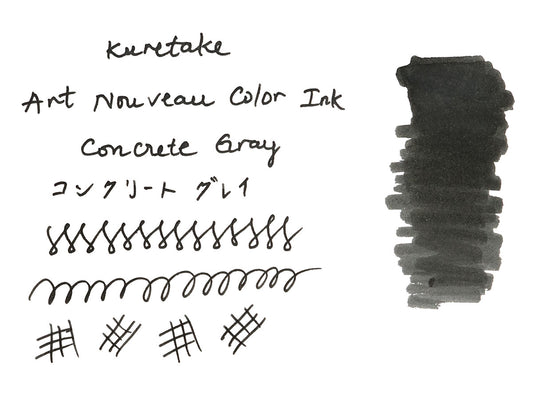 Kuretake
Art Nouveau Color Ink
Concrete Gray
コンクリート グレイ